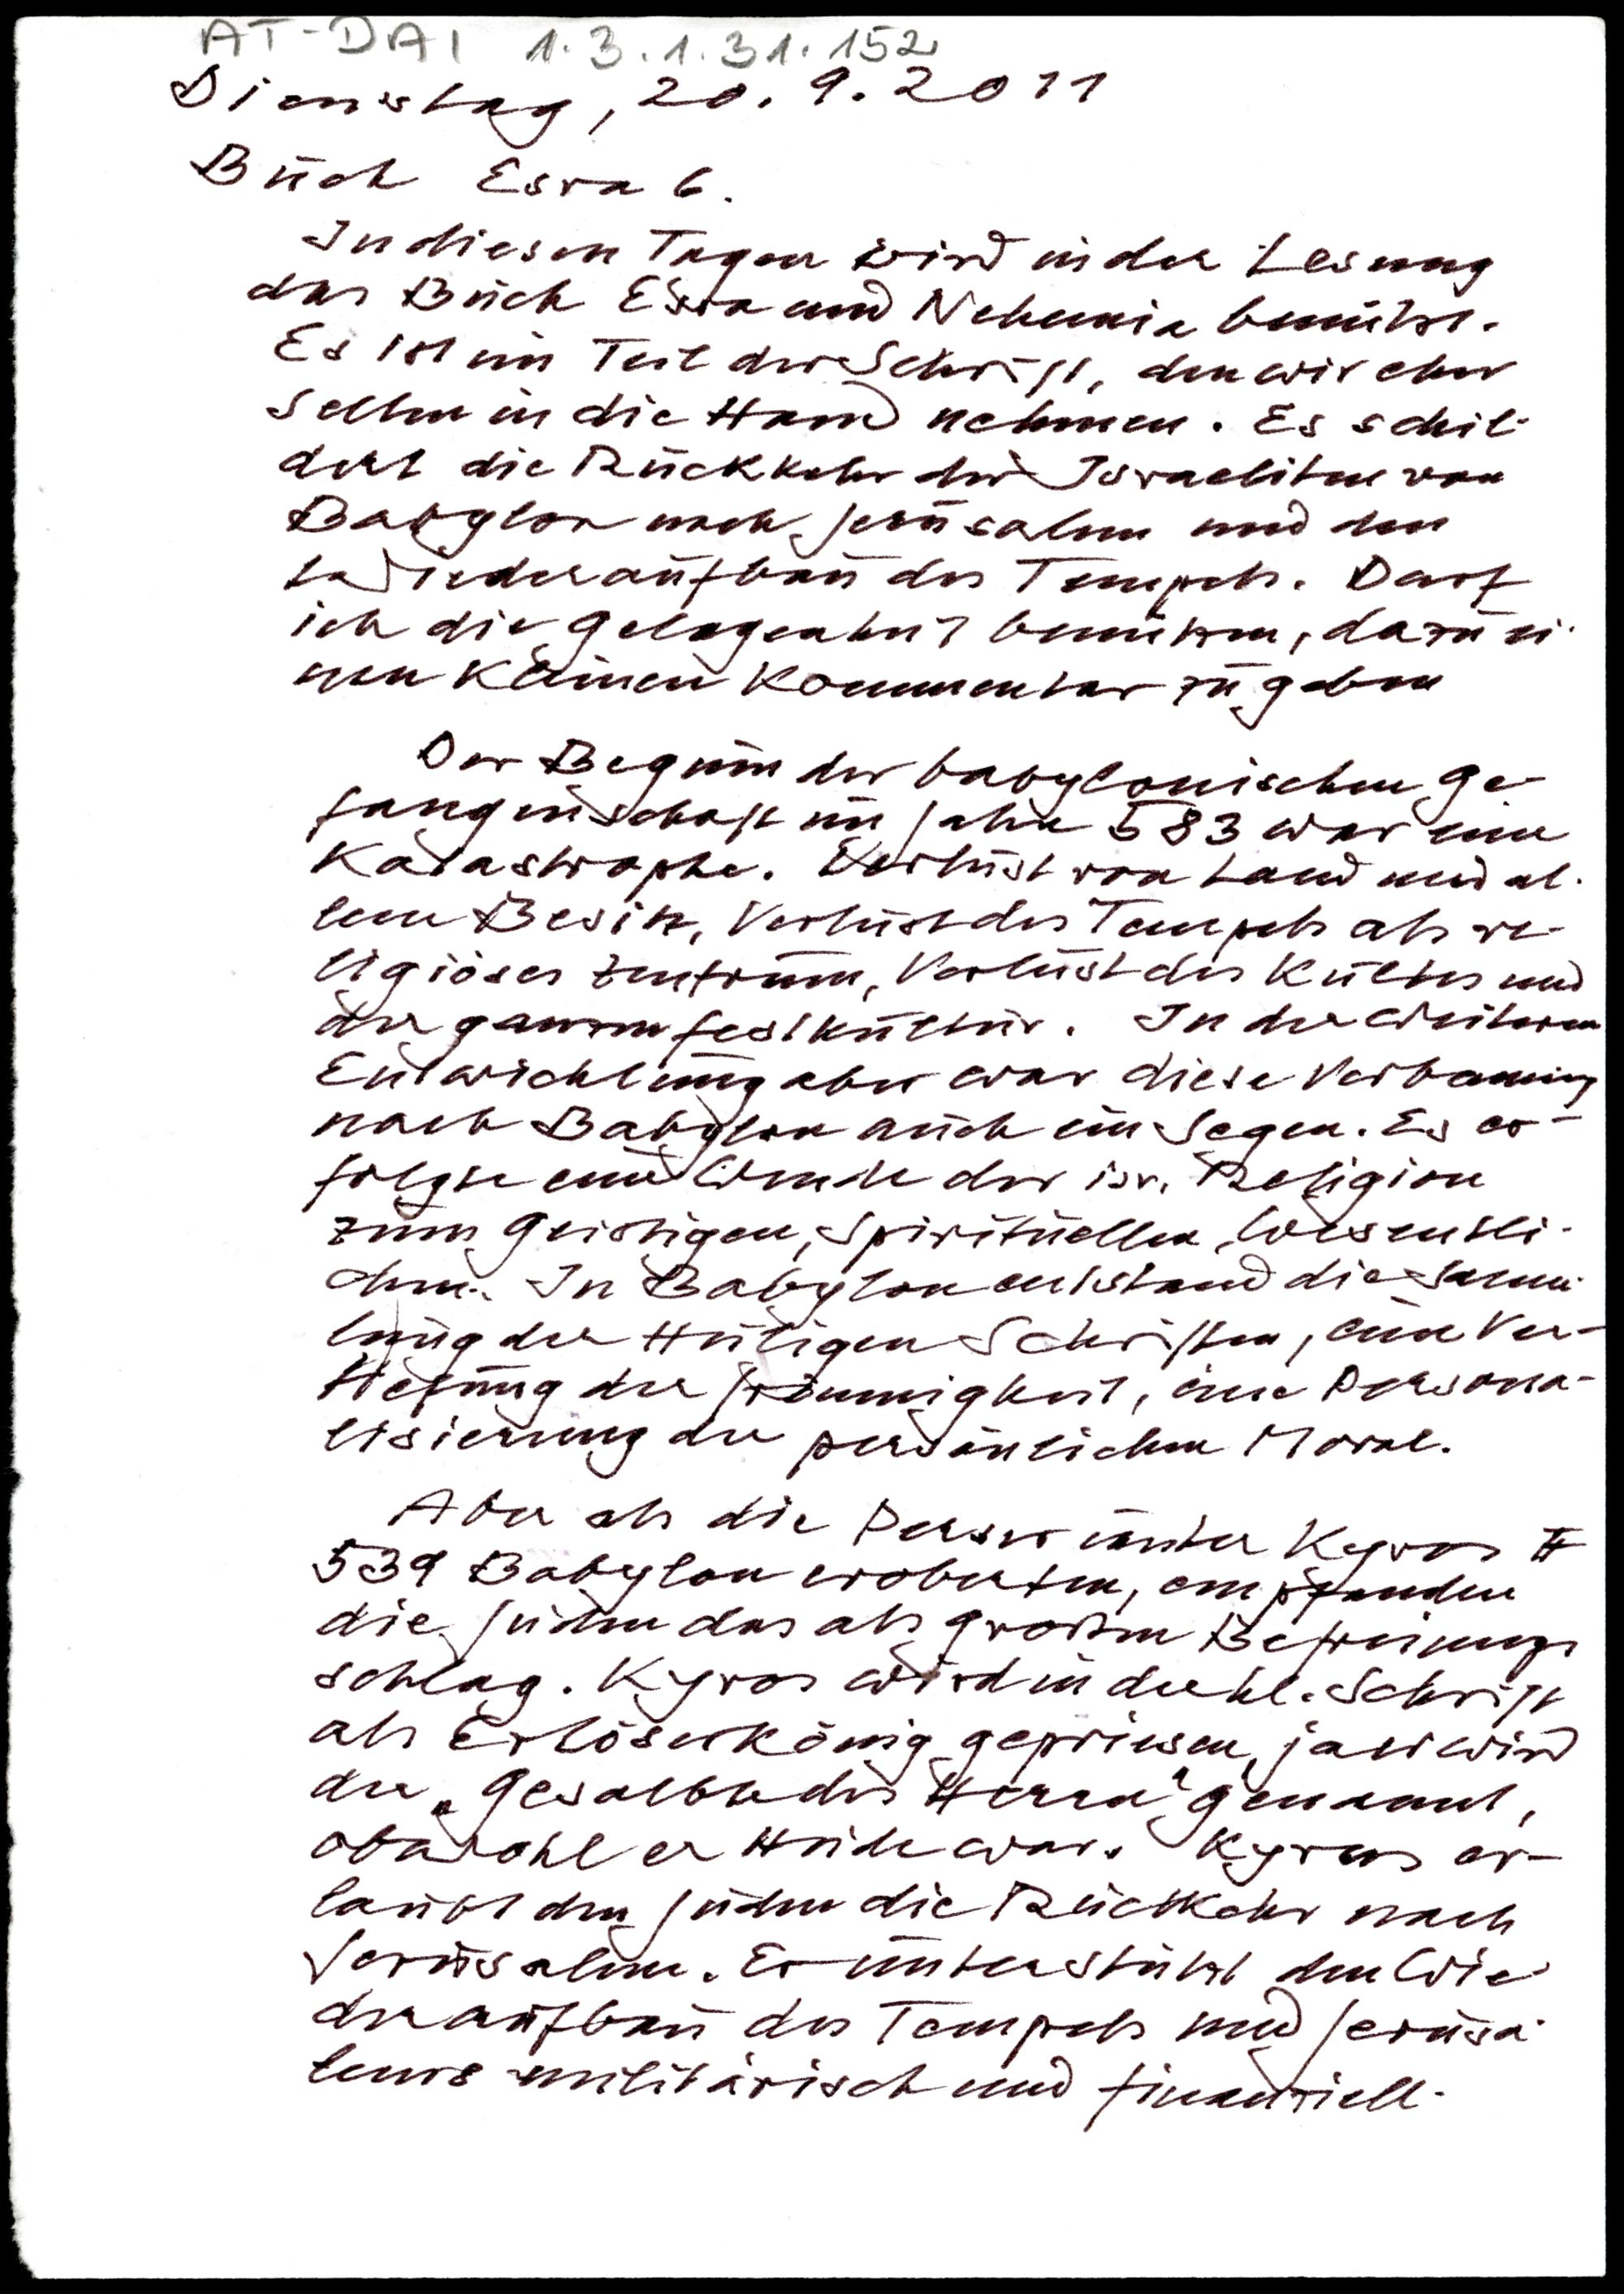 AT-DAI 1.3.1.31.152
Dienstag, 20.9.2011
Buch Esra 6.
In diesen Tagen wird in der Lesung
das Buch Esra und Nehemia benützt.
Es ist ein Teil der Schrift, den wir eher
selten in die Hand nehmen. Es schil-
dert die Rückkehr der Israeliten von
Babylon nach Jerusalem und den
Wiederaufbau des Tempels. Darf
ich die Gelegenheit benützen, dazu ei-
nen kleinen Kommentar zu geben
Der Beginn der babylonischen Ge-
fangenschaft im Jahre 583 war eine
Katastrophe. Verlust von Land und al-
lem Besitz, Verlust des Tempels als re-
ligiöses Zentrum, Verlust des Kultes und
der ganzen Festkultur. In der weiteren
Entwicklung aber war diese Verbannung
nach Babylon auch ein Segen. Es er-
folgte eine Wende der isr. Religion
zum Geistigen, Spirituellen, Wesentli-
chen. In Babylon entstand die Samm-
lung der Heiligen Schriften, eine Ver-
tiefung der Frömmigkeit, eine Persona-
lisierung der persönlichen Moral.
Aber als die Perser unter Kyros II
539 Babylon eroberten, empfanden
die Juden das als großen Befreiungs
schlag. Kyros wird in der hl. Schrift
als Erlöserkönig gepriesen, ja er wird
der „Gesalbte des Herrn" genannt,
obwohl er Heide war. Kyros er-
laubt den Juden die Rückkehr nach
Jerusalem. Er unterstützt den Wie-
deraufbau des Tempels und Jerusa-
lems militärisch und finanziell.